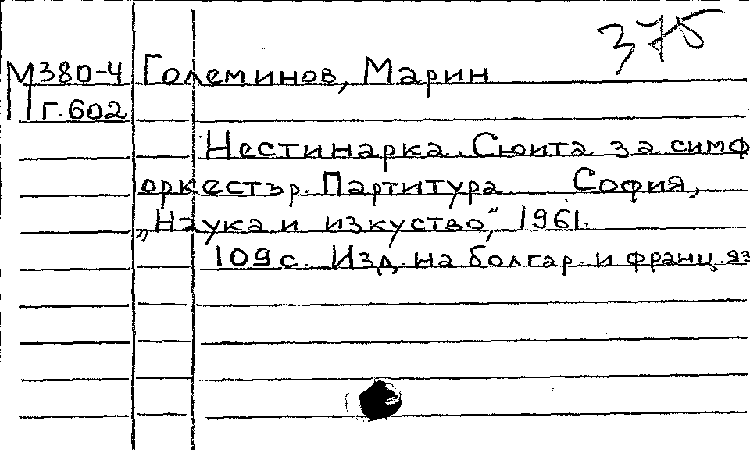 375
М380-4 Големинов, Марин
Г.602
Нестинарка. Сюита за симф
оркестър. Партитура София,
„Наука и изкуство", 1961.
109с. Изд. на болгар. и франц. яз